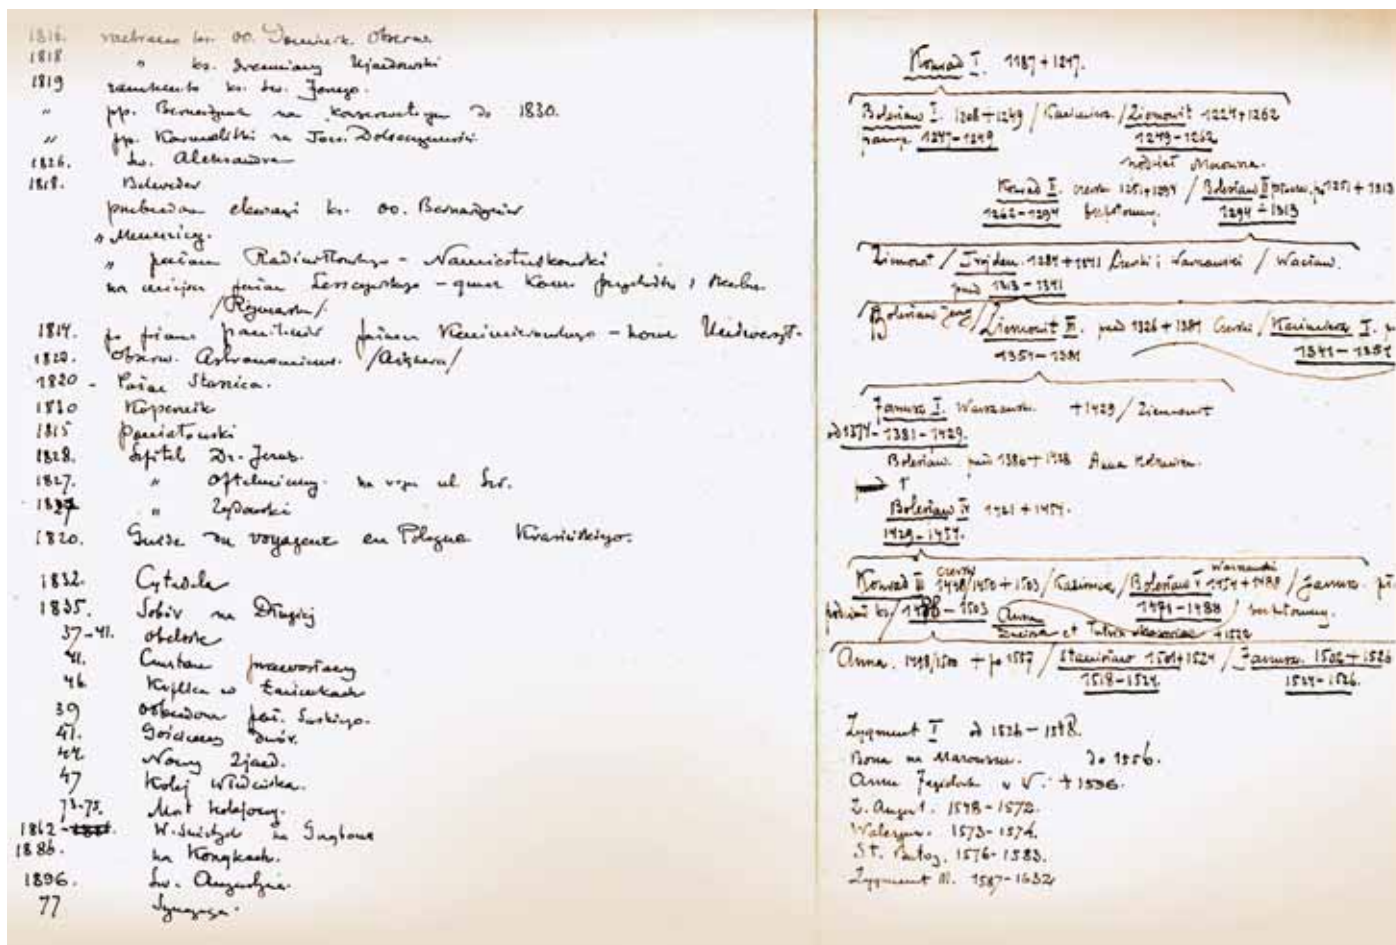 1816. rozebrano ks. OO. Dominik. Obserw.
1818 " ks. drewniany Ujazdowski
1819 zamknięto ks. św. Jerzego.
" pp. Bernardynek na konserwatoryum do 1830.
" pp. Karmelitki na Tow. Dobroczynności
1826. św. Aleksandra
1818. Belweder
przebudowa elewacji ks. OO. Bernardynów
" Mennicy.
" pałacu Radziwiłłowskiego - Namiestnikowski
na miejscu pałacu Leszczyńskiego - gmach Kom. przychodów i skarbu
/Rymarska/
po pałacu Kazimierzowskiego - nowe Uniwersyt-
1820. Obserw. Astronomiczne.
1820 - Pałac Staszica.
1830 Kopernik
1815 Poniatowski
1828. Szpital Dz. Jezus.
1827. " Oftalmiczny. na rogu ul. Św.
" Żydowski
1820. Guide du voyageur en Pologne Krasińskiego.
1832. Cytadela
1835. Sobór na Długiej
37-41. obelisk
41. Cmentarz prawosławny
46 Kaplica w Łazienkach
39 odbudowa pał. Saskiego.
41. Gościnny dwór.
44 Nowy Zjazd.
47 Kolej Wiedeńska.
73-75. Most kolejowy.
1862 - W. Świętych na Grzybowie
1886. na Koszykach.
1896. Św. Augustyna.
77 Synagoga.
Konrad I. 1187 + 1247.
Bolesław I. 1208 + 1249 / Kazimierz / Ziemowit 1224 + 1262
panuje 1247-1249 1249-1262
podział Mazowsza.
Konrad II. czerski 1251 + 1294 / Bolesław II płocki 1251 + 1313
1262-1294 bezpotomny. 1294-1313
Ziemowit / Trojden 1284 + 1341 Czerski i Warszawski / Wacław.
pan. 1313-1341
Bolesław Jerzy / Ziemowit III. 1326 + 1381 Czerski / Kazimierz I.
1351-1381 1341-1351
Janusz I. Warszawski + 1429 / Ziemowit
od 1374-1381-1429.
Bolesław + 1428 Anna
Bolesław IV 1421 + 1454.
1429-1454.
Konrad III czerski 1448/1450 + 1503 / Kazimierz / Bolesław V warszawski 1454 + 1488 / Janusz
1503 Anna 1471-1488 / bezpotomny.
+ 1522
Anna. 1498/1500 + po 1557 / Stanisław 1501 + 1524 / Janusz 1502 + 1526
1518-1524. 1524-1526.
Zygmunt I od 1526-1548.
Bona na Mazowszu. do 1556.
Anna Jagiellonka + 1596.
Z. August. 1548-1572.
Walezyusz. 1573-1574.
St. Batory. 1576-1583.
Zygmunt III. 1587-1632